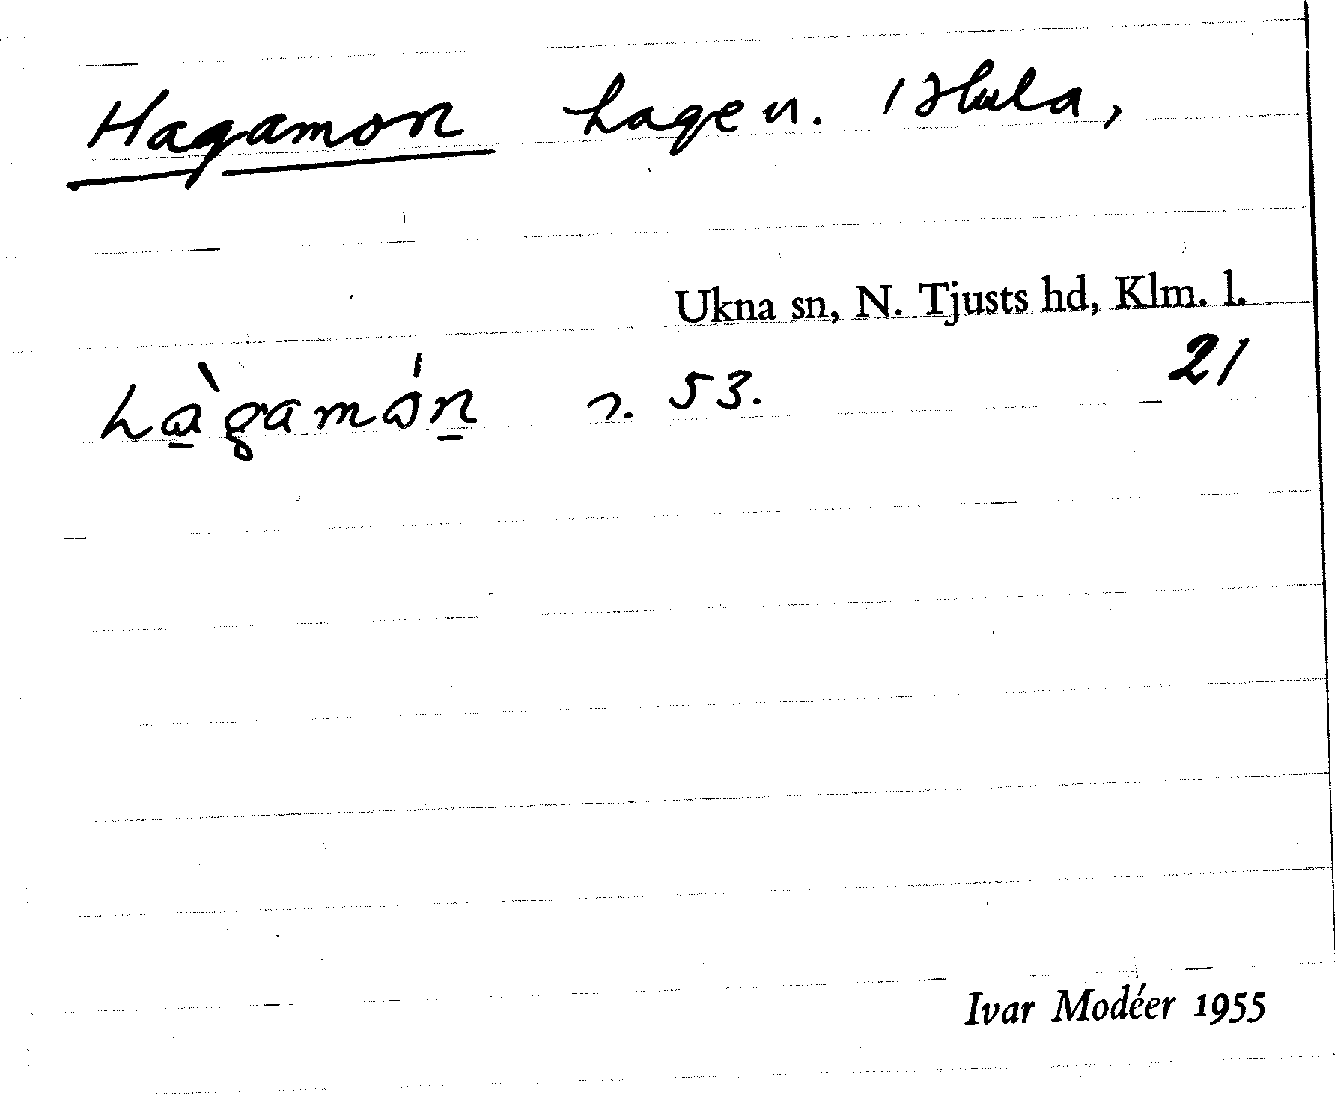 Hagamon hagen.
Ukna sn, N. Tjusts hd, Klm. l.
hàgamón 53. 21
Ivar Modéer 1955